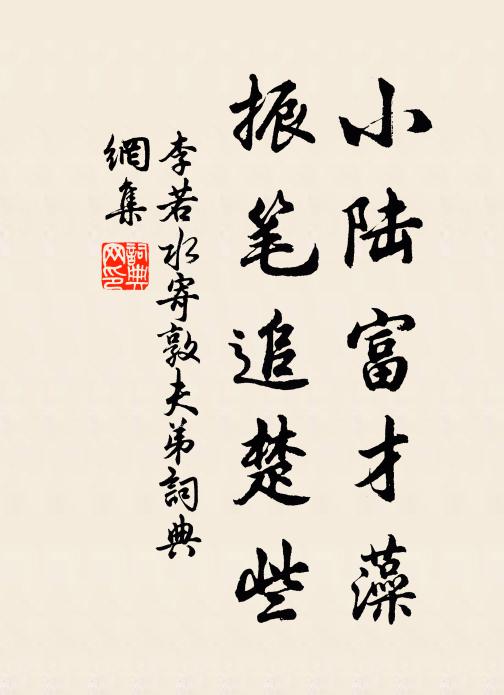 小陆富才藻
振笔追楚些
李若水寄敦夫弟詞典
網集
詞典
网印